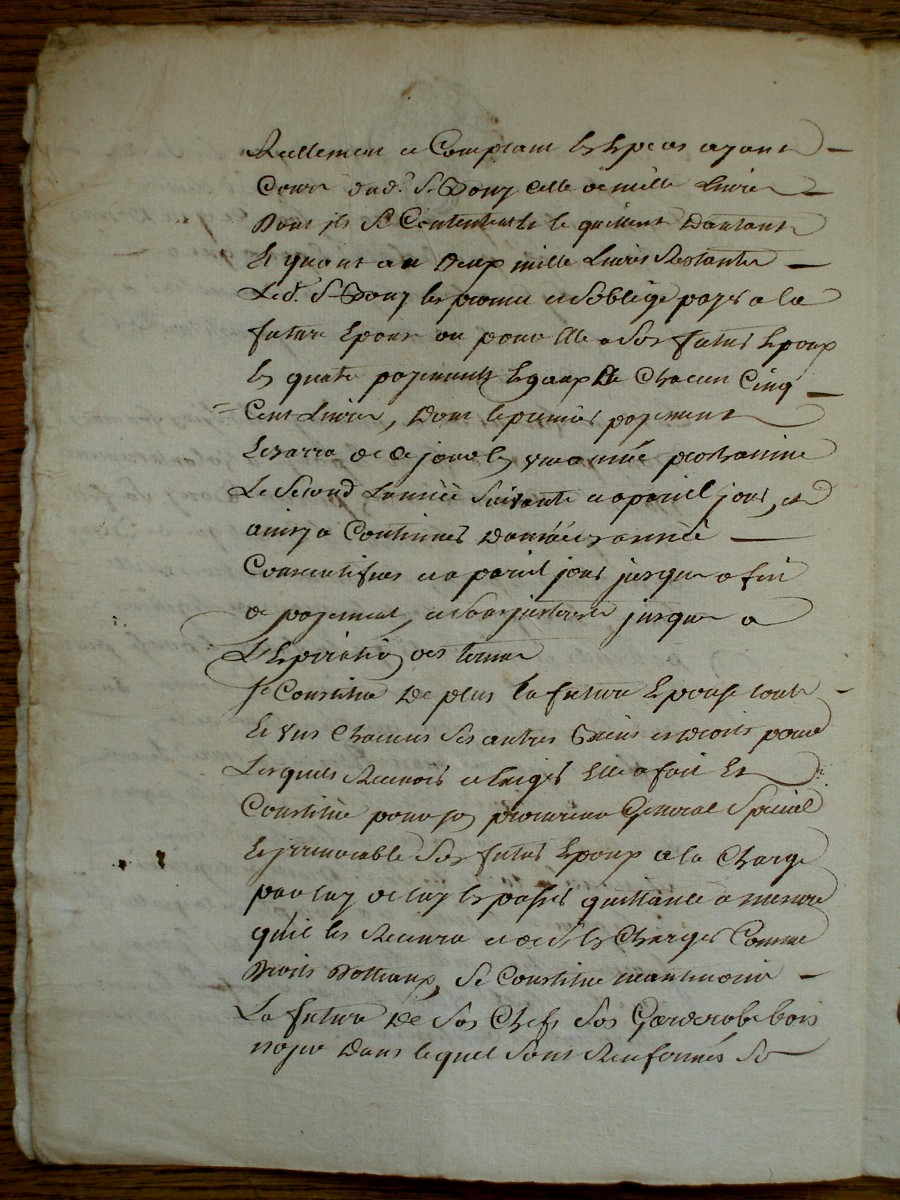 Reellement et Comptant En Especes ayant
Cours dud. Sr Dony Celle de mille Livres
Dont ils Se Contentent & le quittent Dautant
Et quant au Deux mille Livres Restantes
Led. Sr Dony les promet et soblige payer a la
future Epouse ou pour Elle a Son futur Epoux
En quatre payements Egaux De Chacun Cinq
Cent Livres, Dont le premier payement
Sera de ce jour En une année prochainne
Le Second Lannéé Suivante a pareil jour, et
ainsy a Continuer Dannéé En annéé
Consecutifves et a pareil jour jusques a fin
de payement, et sans interest jusques a
L'Expiration des termes
Se Constitue De plus la future Epouse touts
Et uns Chacuns Ses autres Biens et Droits pour
Lesquels Recevoir et Exiger Elle a fait Et
Constitué pour son procureur General Special
Et irrevocable Son futur Epoux a la Charge
par luy de luy En passer quittance a mesure
quil les Recevra et de les Charger Comme
Droits Dottaux, Se Constitue neantmoins
La future De Son Chef Son Garderobe bois
noyer Dans lequel Sont Renfermés Se